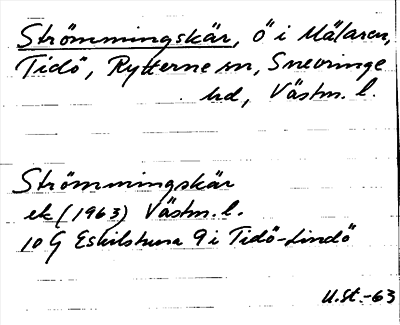 Strömmingskär, ö i Mälaren,
Tidö, Rytterne sn, Snevringe
hd, Västm. l.
Strömmingskär
ek (1963) Västm. l.
10 G Eskilstuna 9 i Tidö-Lindö
U.St.-63